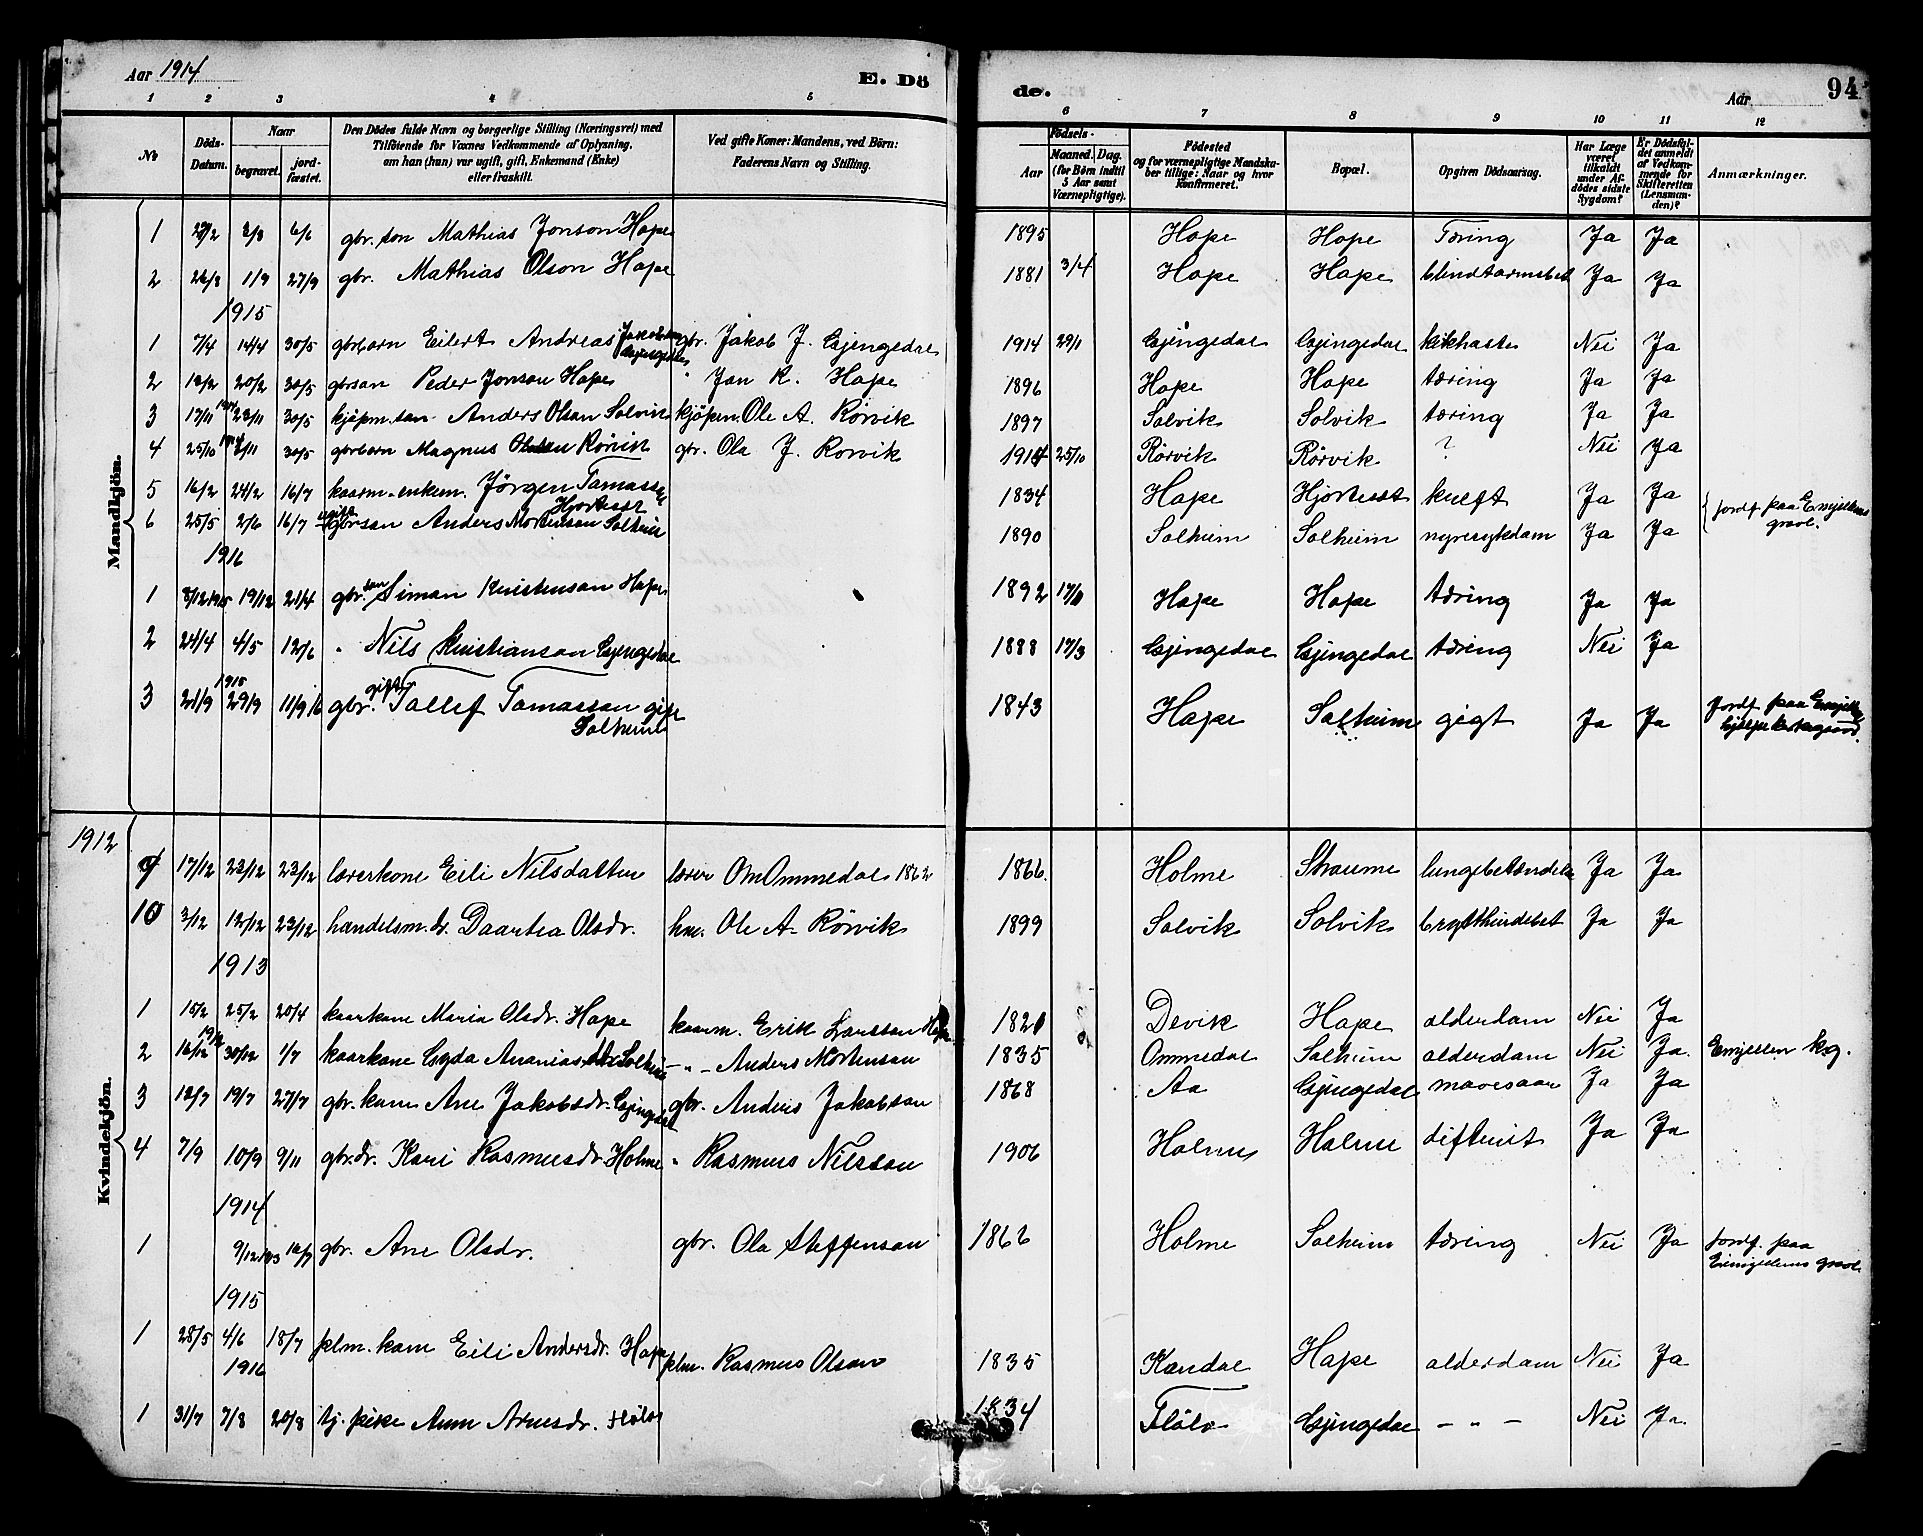 Aar 1914
E. Dö
de.
Aar
94
1 2 3 4 5 6 7 8 9 10 11 12
No
Döds-Datum.
Naar
begravet.
jord-fæstet.
Den Dödes fulde Navn og borgerlige Stilling (Næringsvei) med
Tilföiende for Voxnes Vedkommende af Oplysning,
om han (hun) var ugift, gift, Enkemand (Enke)
eller fraskilt.
Ved gifte Koner: Mandens, ved Börn:
Faderens Navn og Stilling.
Födsels-
Aar
Maaned. Dag.
(for Börn indtil
5 Aar samt
Værnepligtige).
Födested
og for værnepligtige Mandska-
ber tillige: Naar og hvor
Konfirmeret.
Bopæl.
Opgiven Dödsaarsag.
Har Læge
været
tilkaldt
under Af-
dödes sidste
Sygdom?
Er Dödsfal-
det anmeldt
af Vedkom-
mende for
Skifteretten
(Lensman-
den)?
Anmærkninger.
Mandkjön.
1 2/3 6/6 gbr. son Mathias Jonson Hope 1895 Hope Hope Tæring Ja Ja
2 26/8 1/9 27/9 gbr. Mathias Olson Hope 1881 3/4 Hope Hope blindtarmsbet Ja Ja
1915
1 7/4 14/4 30/5 gbrbarn Eilert Andreas Jakobson Gjengedal gbr. Jakob J. Gjengedal 1914 29/1 Gjengedal Gjengedal kikhoste Nei Ja
2 12/2 20/2 30/5 gbrson Peder Jonson Hope " Jon R. Hope 1896 Hope Hope tæring Ja Ja
3 17/11 1914 23/11 30/5 kjøpm. son Anders Olson Solvik kjøpm. Ole A. Rørvik 1897 Solvik Solvik tæring Ja Ja
4 25/10 1914 2/11 30/5 gbrbarn Magnus Olson Rørvik gbr. Ola J. Rørvik 1914 25/10 Rørvik Rørvik ? Nei Ja
5 16/2 24/2 16/7 kaarm. enkem. Jørgen Tomassen Hjorteset 1834 Hope Hjorteset kreft Ja Ja
6 25/5 2/6 16/7 ugift gbrson Anders Mortenson Solheim 1890 Solheim Solheim nyresykdom Ja Ja
{ jordf. paa Emjellens
gravl.
1916
1 8/12 1915 19/12 21/4 gbr. son Simon Kristenson Hope 1892 Hope Hope tæring Ja Ja
2 24/4 4/5 12/6 " Nils Kristianson Gjengedal 1888 17/3 Gjengedal Gjengedal tæring Nei Ja
3 21/9 1915 29/9 11/9 16 gbr. gift Tollef Tomasson gift Solheim 1843 Hope Solheim gigt Ja Ja jordf. paa Emjellen
1912
Kvindekjön.
9 17/12 23/12 23/12 lærerkone Eili Nilsdatter lærer O M Ommedal 1862 1866. Holme Straume lungebetændelse Ja Ja
10 3/12 12/12 23/12 handelsm. dr. Daartea Olsdr. hm. Ole A. Rørvik 1899 Solvik Solvik brysthindebet Ja Ja
1913
1 15/2 25/2 20/4 kaarkone Maria Olsdr. Hope kaarm. Erik Larsson Hope 1821 Devik Hope alderdom Nei Ja
2 16/12 1912 30/12 1/7 kaarkone Gyda Ananiasdtr Solheim – " – Anders Mortenson 1835 Ommedal Solheim alderdom Nei Ja. Emjellen kg.
3 12/7 19/7 27/7 gbr. kone Ane Jakobsdr. Gjengedal gbr. Anders Jakobson 1868 Aa Gjengedal mavesaar Ja Ja
4 7/9 10/9 9/11 gbr.dr. Kari Rasmusdr. Holme " Rasmus Nilsson 1906 Holme Holme difterit Ja Ja
1914
1 9/12 1913 gbr. Ane Olsdr. gbr. Ola Steffenson 1862 Holme Solheim tæring Nei Ja jordf. paa
Emjellens gravl.
1915
1 28/5 4/6 18/7 plm. kone Eili Andersdr. Hope plm. Rasmus Olson 1835 Kandal Hope alderdom Nei Ja
1916
1 31/7 7/8 20/8 tj. pike Anne Arnesdr. Fløto 1834 Fløto Gjengedal – " – Nei Ja.